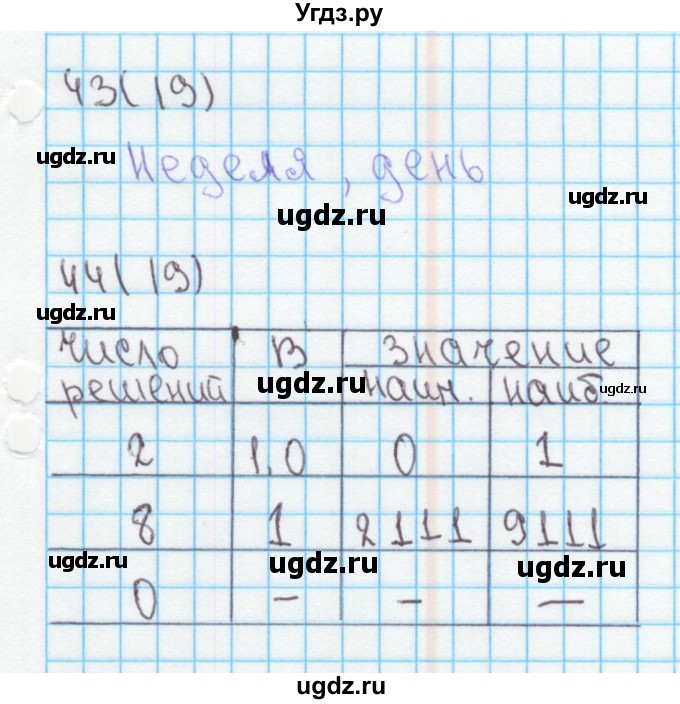 Угдз.ру
43(19)
ugdz.ru
Неделя, день
ugdz.ru
ugdz.ru
44(19)
ugdz.ru
число В значение
ugdz.ru
решений наим. наиб.
ugdz.ru
2 1,0 0 1
8 1 2111 9111
ugdz.ru ugdz.ru ugdz.ru
0 – – –
ugdz.ru